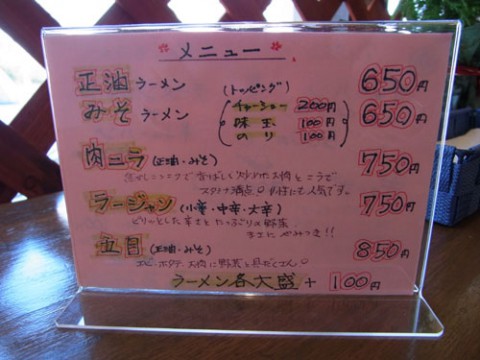 メニュー
正油ラーメン 650円
(トッピング)
みそラーメン 650円
チャーシュー 200円
味玉 100円
のり 100円
肉ニラ (正油・みそ) 750円
香ばしく炒めたお肉とニラで
スタミナ満点♡ 女性にも人気です。
ラージャン (小辛・中辛・大辛) 750円
ピリッとした辛さとたっぷりの野菜
まさにやみつき!!
五目 (正油・みそ) 850円
エビ・ホタテ・お肉に野菜と具だくさん♡
ラーメン各大盛 + 100円